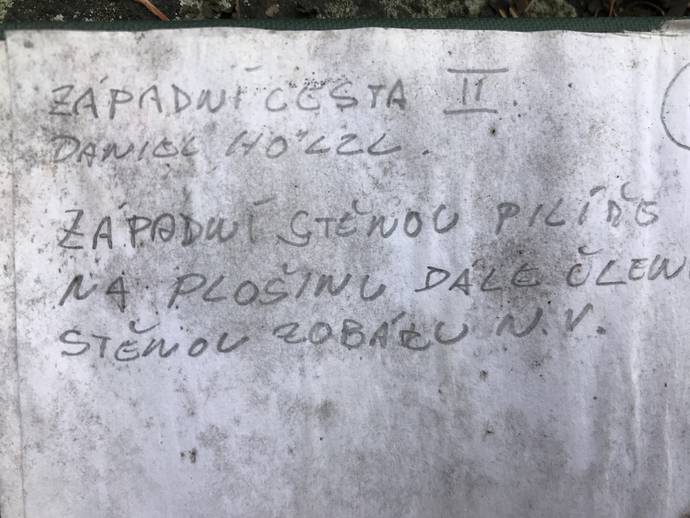 ZÁPADNÍ CESTA II.
DANIEL HÖLZL.
ZÁPADNÍ STĚNOU PILÍŘE
NA PLOŠINU DÁLE ČLEN
STĚNOU ZOBÁKU N.V.